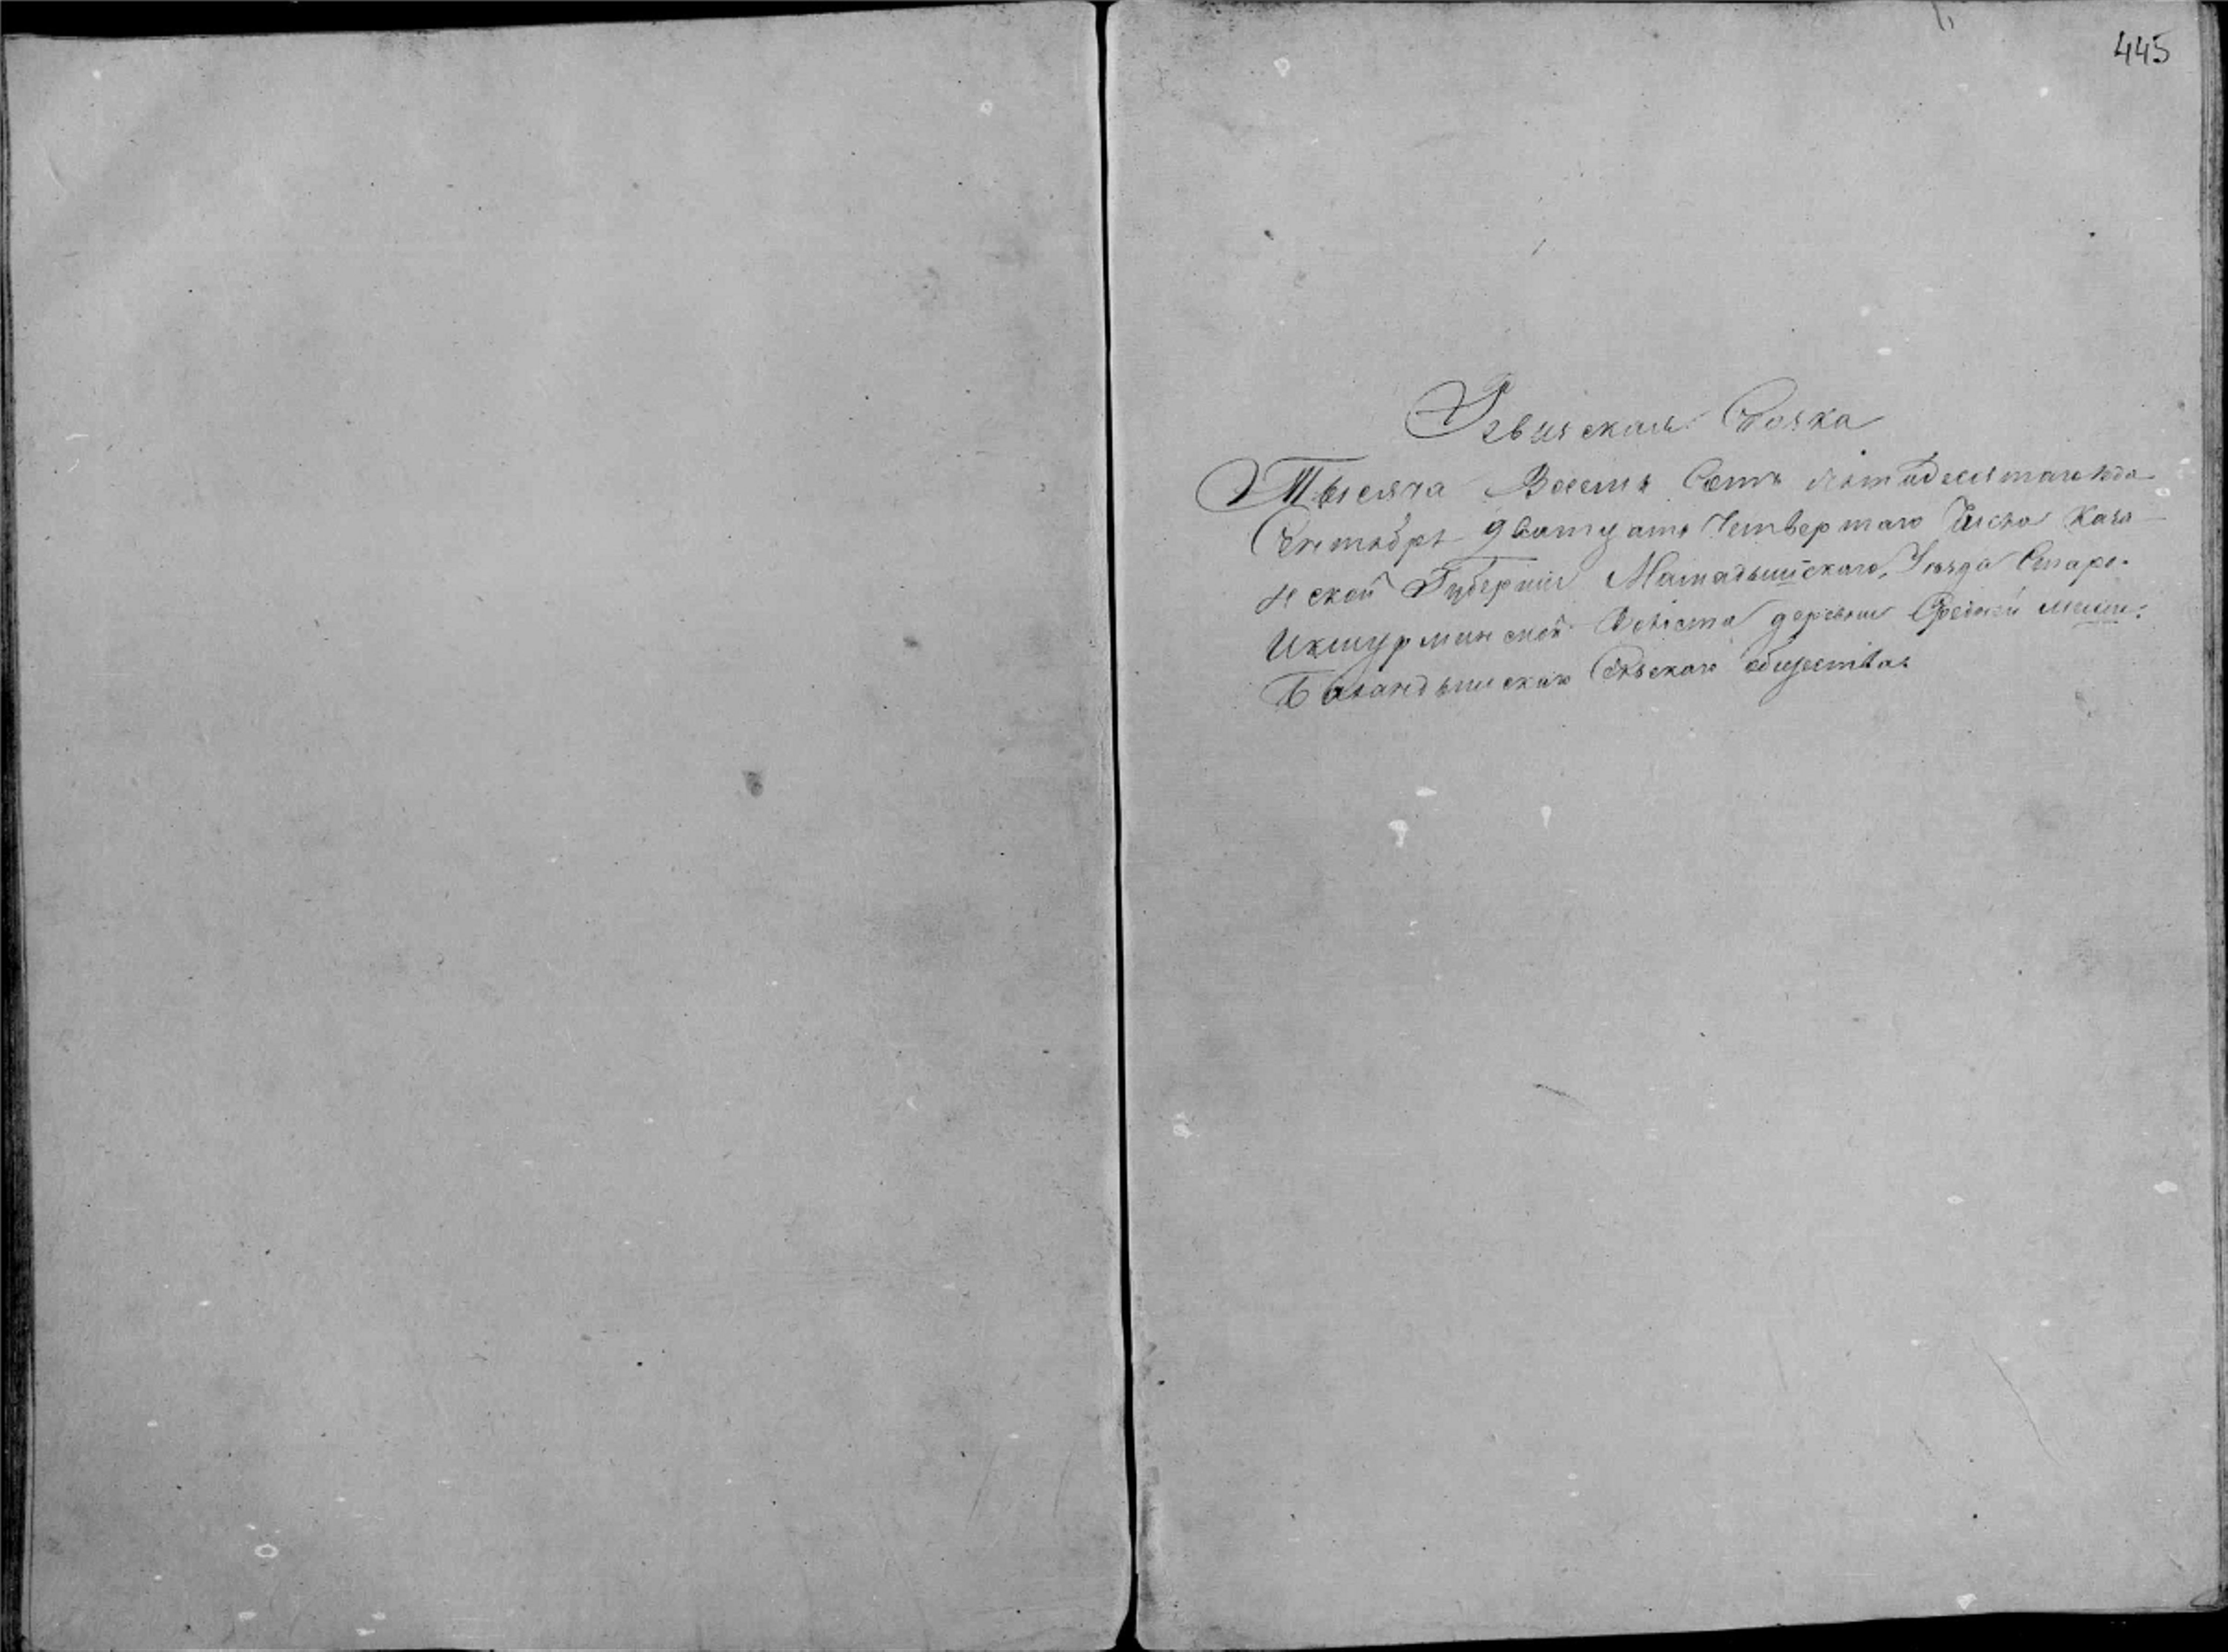 445
Ревижская Скаска
Тысяча Восемь Сотъ пятидесятаго года
Октября дватцать Четвертаго Числа Каза-
нской Губернии Мамадышскаго Уезда Старо-
Икшурминской Волости деревни Средней
Баландышскаго Сельскаго общества